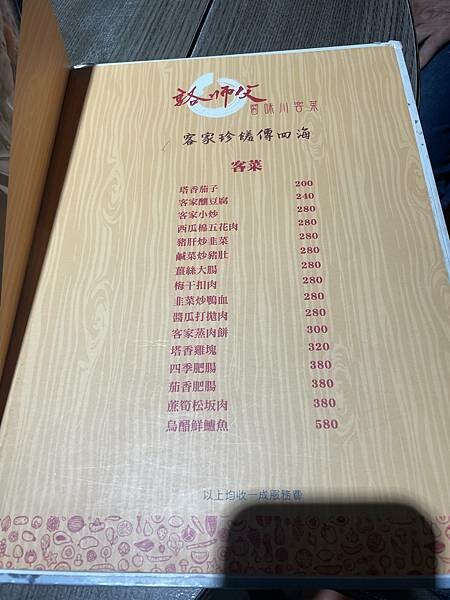 駱師父
蜀味川客菜
客家珍饈傳四海
客菜
塔香茄子 200
客家釀豆腐 240
客家小炒 280
西瓜棉五花肉 280
豬肝炒韭菜 280
鹹菜炒豬肚 280
薑絲大腸 280
梅干扣肉 280
韭菜炒鴨血 280
醬瓜打拋肉 280
客家蒸肉餅 300
塔香雞塊 320
四季肥腸 380
茄香肥腸 380
蔗筍松坂肉 380
烏醋鮮鱸魚 580
以上均收一成服務費